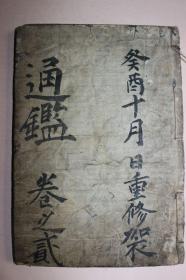 癸酉十月日重修架
通鑑
卷之貳